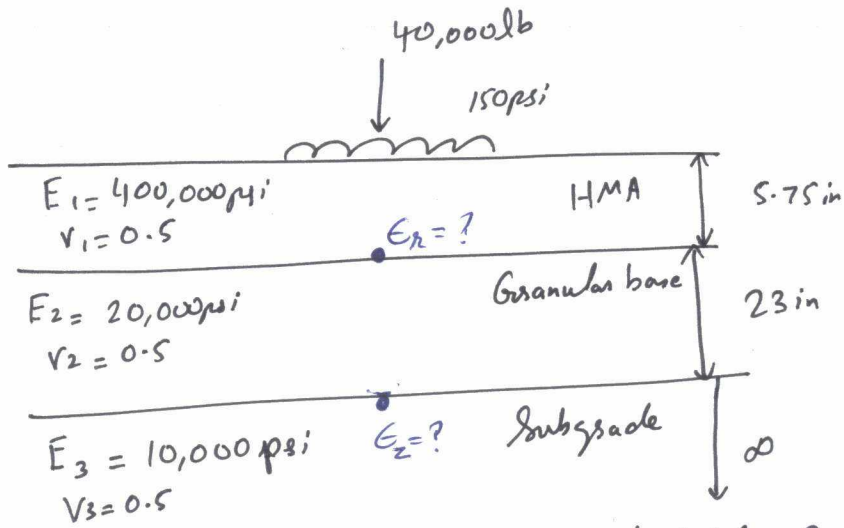 40,000lb
150psi
E1 = 400,000psi
ν1 = 0.5
HMA
5.75 in
ϵr = ?
E2 = 20,000psi
ν2 = 0.5
Granular base
23 in
E3 = 10,000 psi
ν3 = 0.5
ϵz = ?
Subgrade
∞